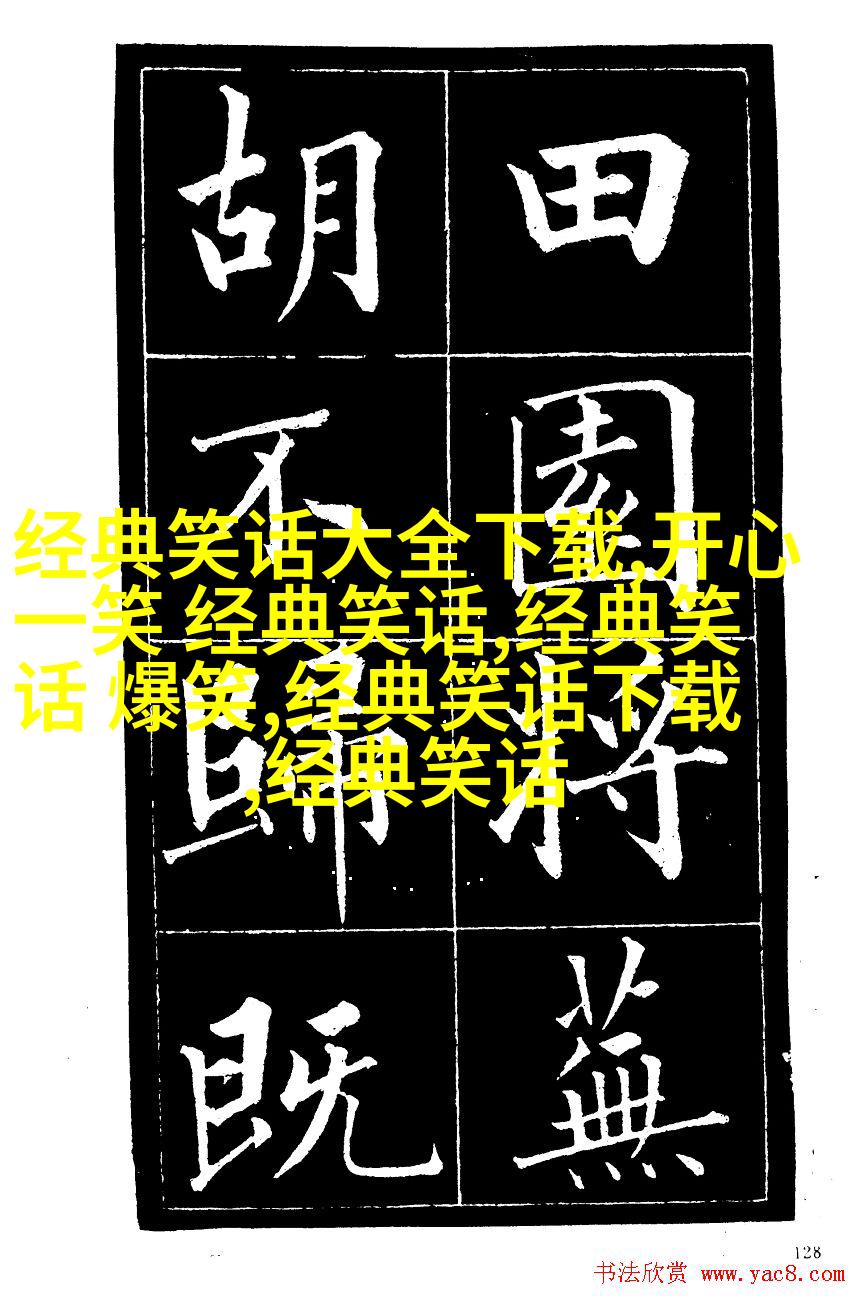 田園將蕪
胡不歸既
经典笑话大全下载,开心
一笑 经典笑话,经典笑
话 爆笑,经典笑话下载
,经典笑话
128
书法欣赏 www.yac8.com